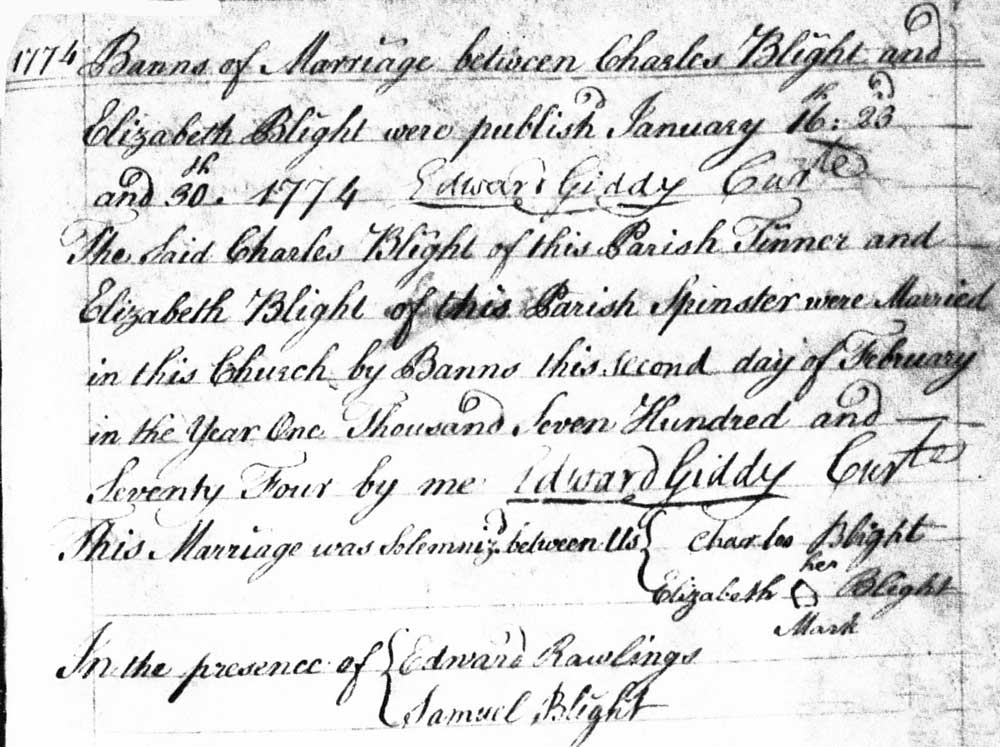 1774 Banns of Marriage between Charles Blight and
Elizabeth Blight were publish'd January 16th: 23d
and 30th. 1774 Edward Giddy Curte
The Said Charles Blight of this Parish Tinner and
Elizabeth Blight of this Parish Spinster were Married
in this Church by Banns this second day of February
in the Year One Thousand Seven Hundred and
Seventy Four by me Edward Giddy Curte
This Marriage was Solemniz'd between Us { Charles Blight
Elizabeth her Mark Blight
In the presence of { Edward Rawlings
Samuel Blight